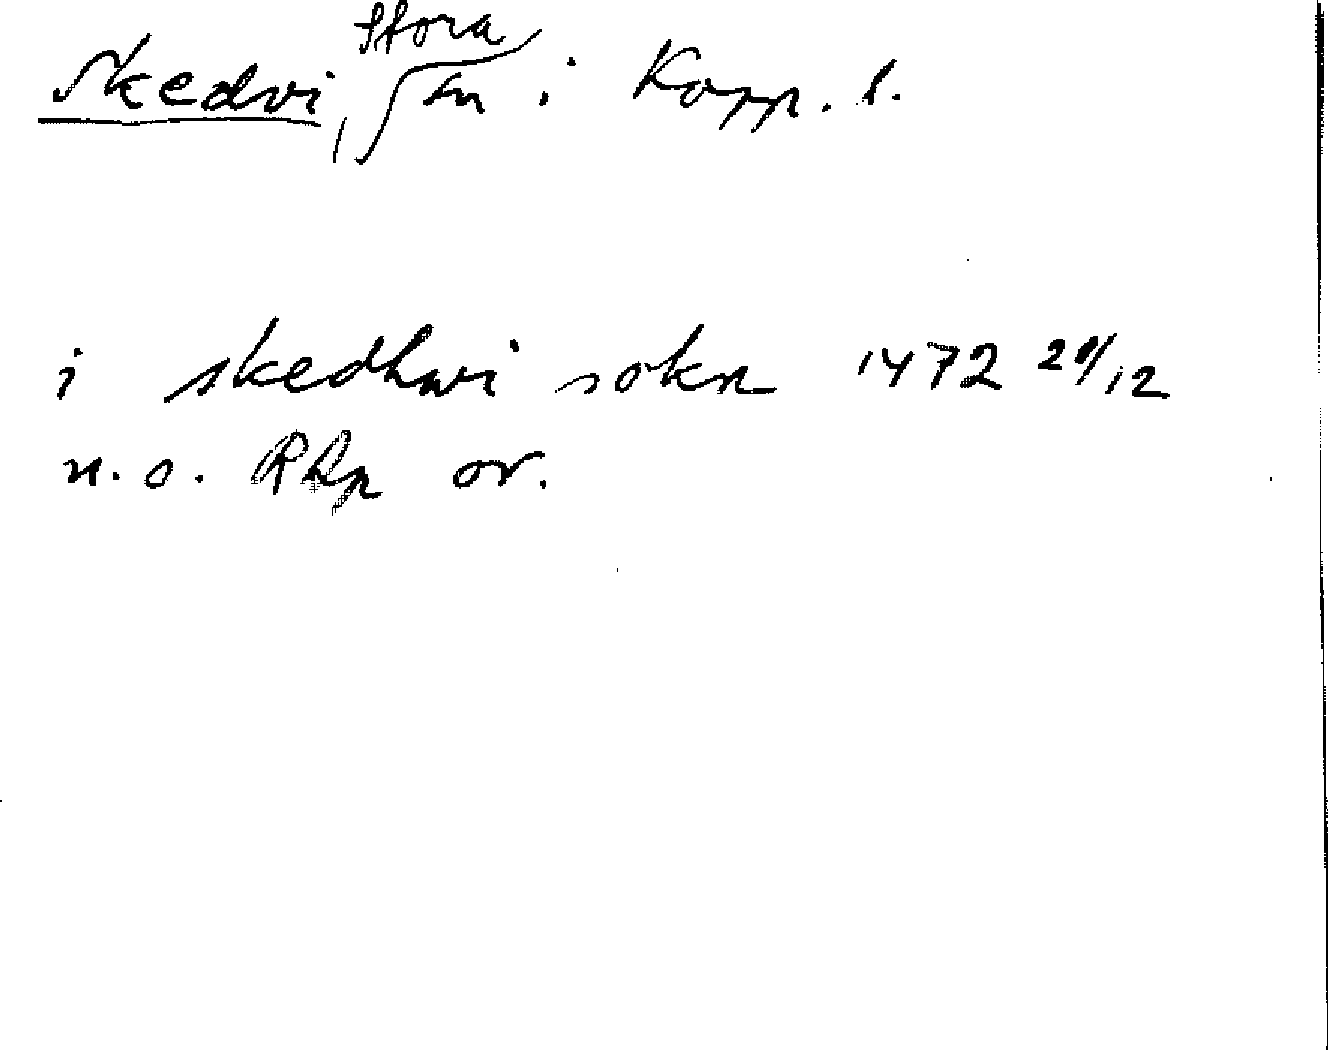 Skedvi, Stora sn i Kopp. l.
i skedhwi sokn 1472 29/12
n.o. RAp or.